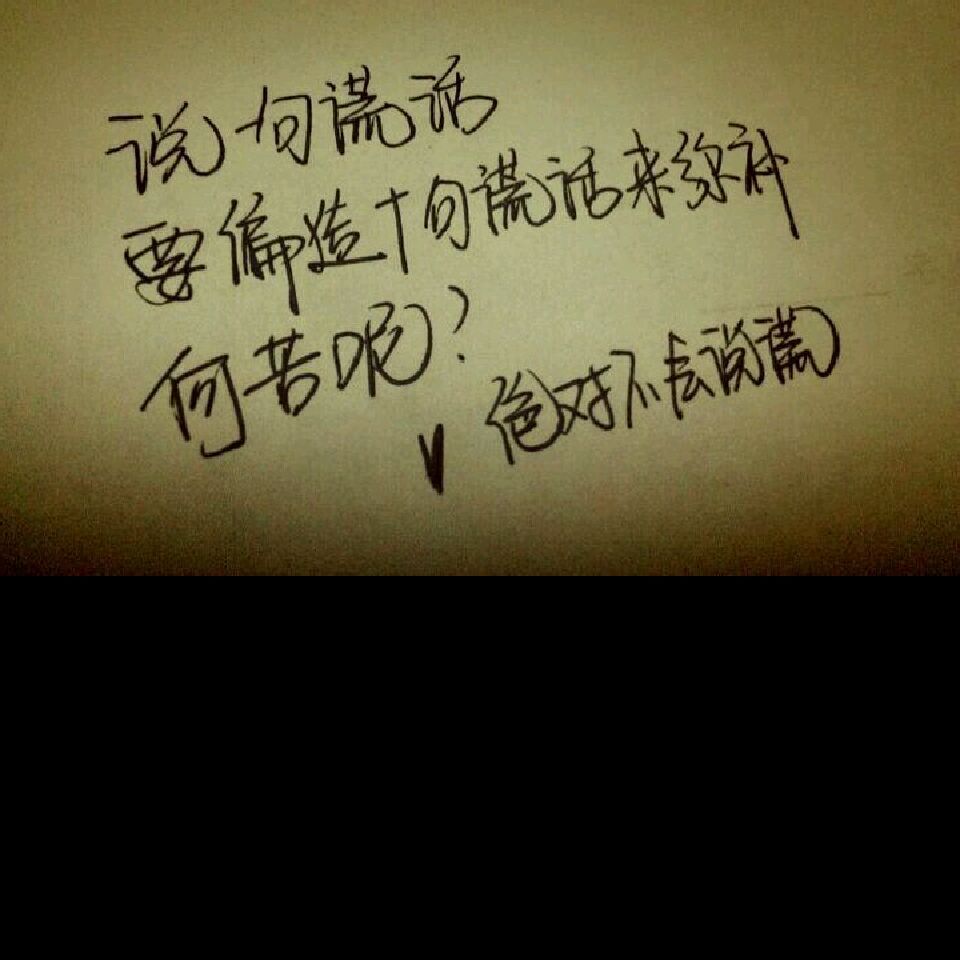 说一句谎话
要偏造十句谎话来弥补
何苦呢?
绝对不去说谎